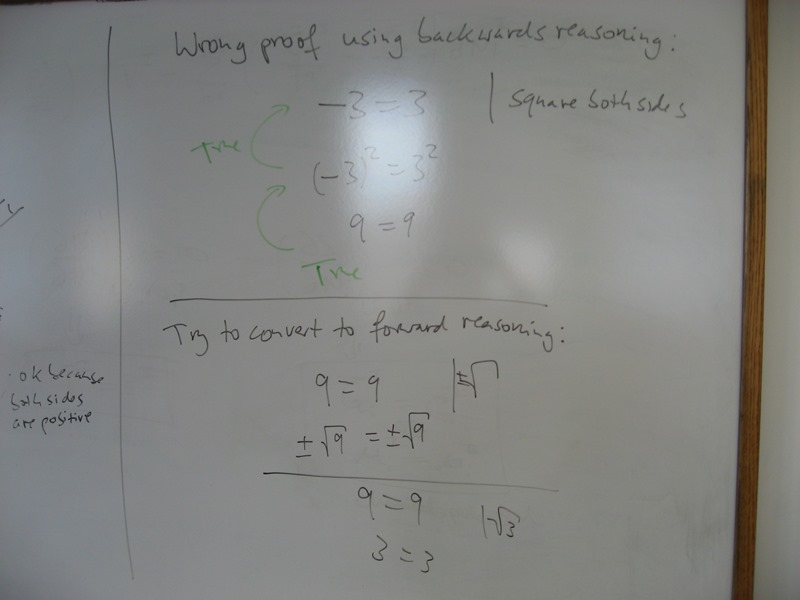 Wrong proof using backwards reasoning:
-3 = 3 | square both sides
True
(-3)² = 3²
9 = 9
True
Try to convert to forward reasoning:
9 = 9 | ±√
±√9 = ±√9
9 = 9 | √3
3 = 3
ok because
both sides
are positive